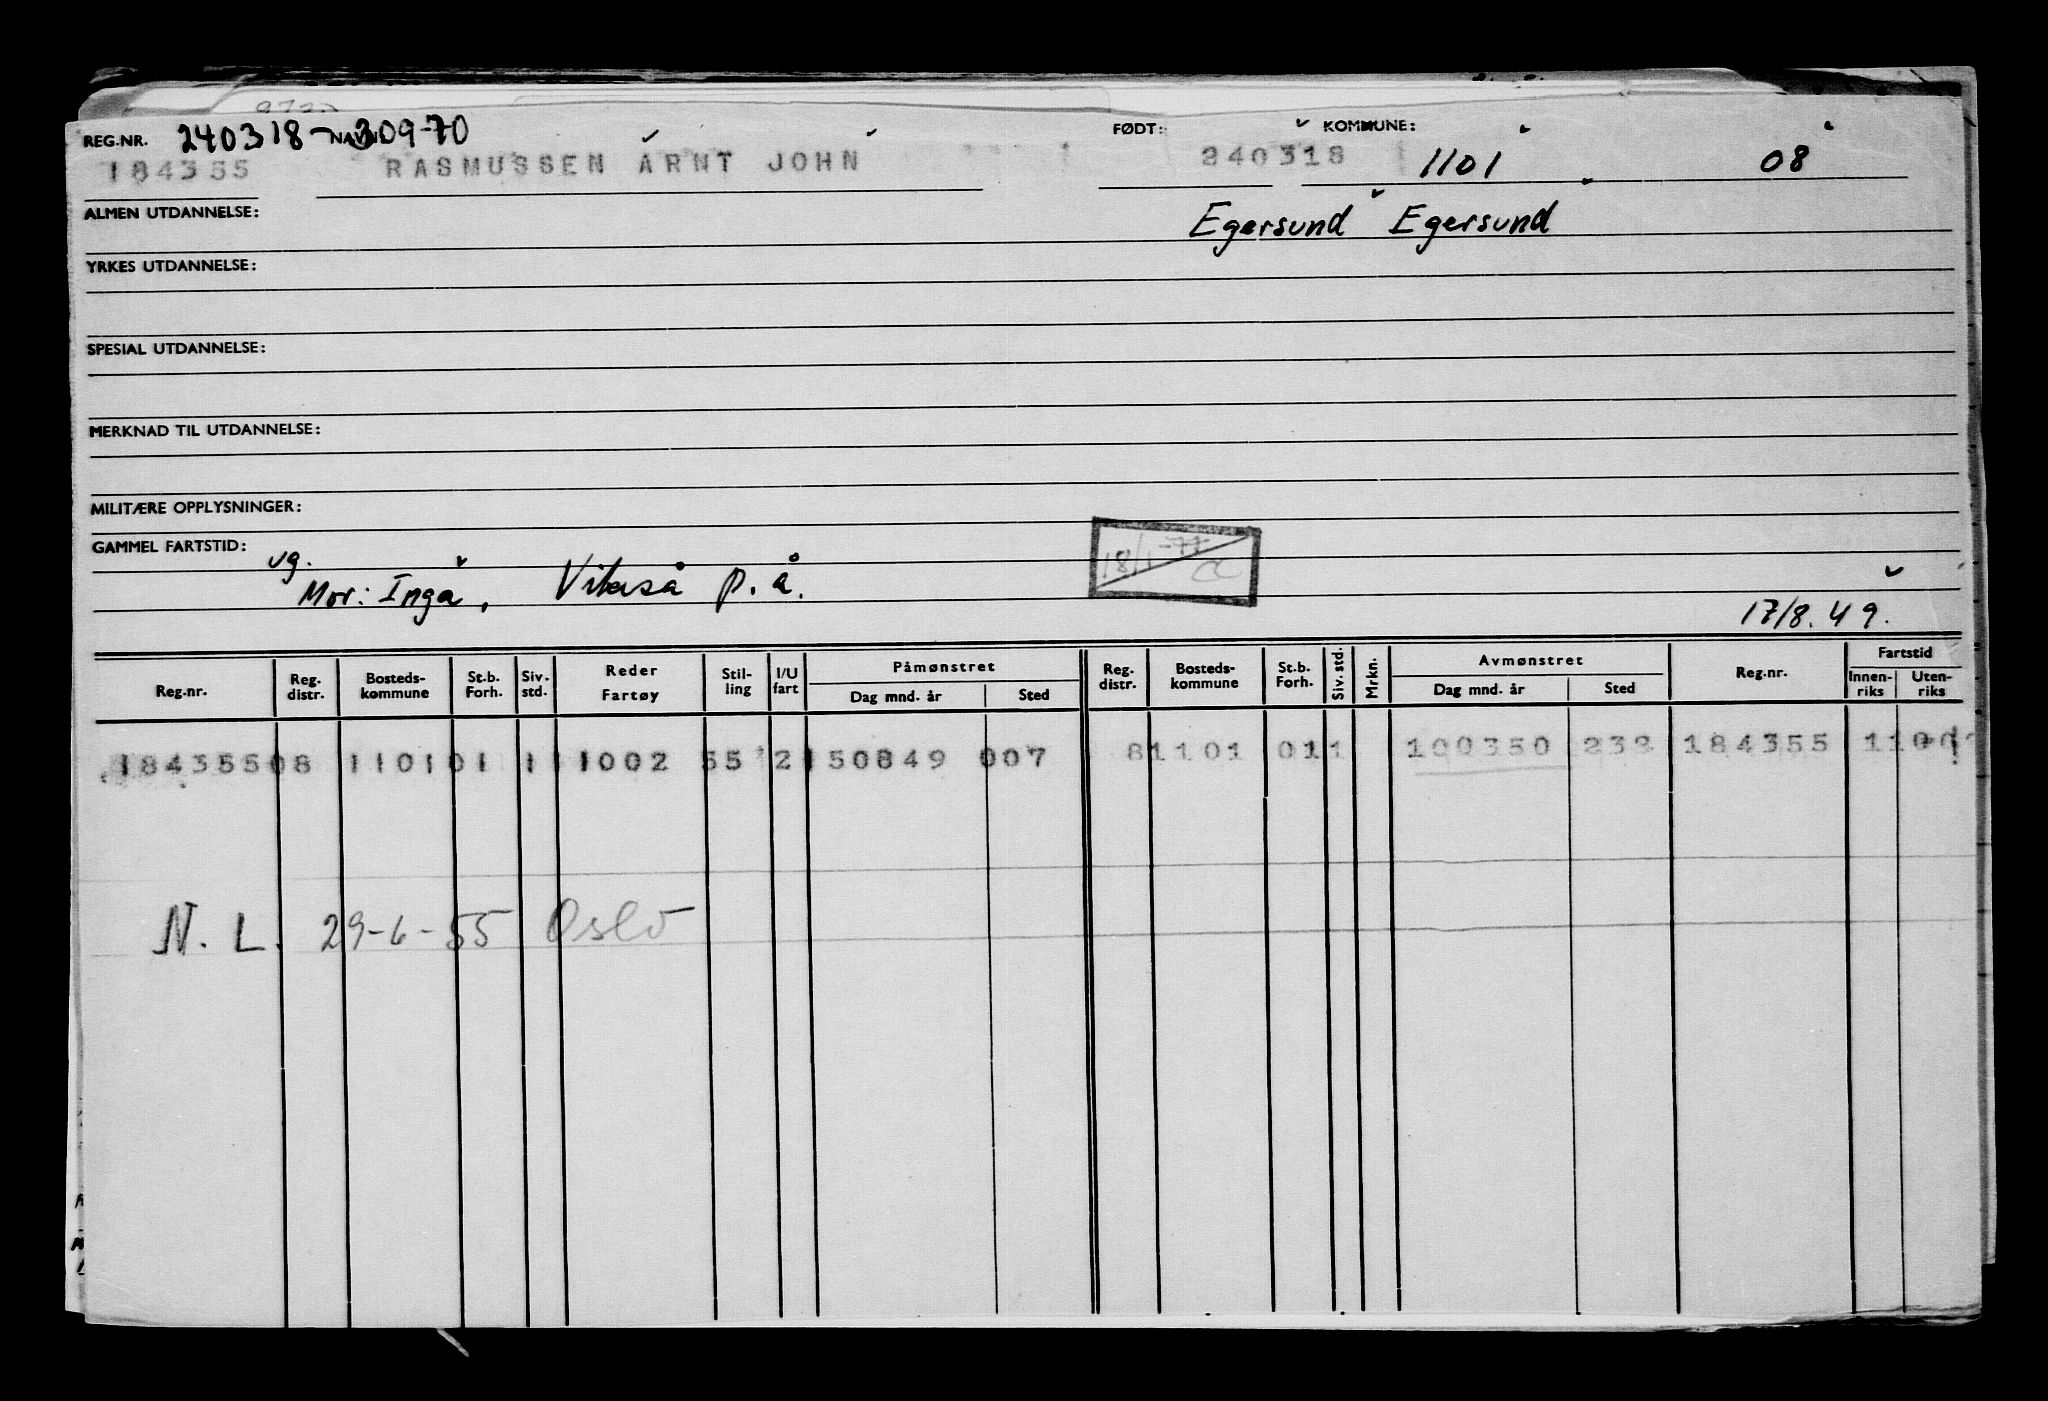 REG.NR. 240318-30970 NAVN: FØDT: KOMMUNE:
184355 RASMUSSEN ARNT JOHN 240318 1101 08
ALMEN UTDANNELSE: Egersund Egersund
YRKES UTDANNELSE:
SPESIAL UTDANNELSE:
MERKNAD TIL UTDANNELSE:
MILITÆRE OPPLYSNINGER:
GAMMEL FARTSTID:
vg.
Mor: Inga, p. å. 18/1-77
17/8.49.
Reg.nr. Reg. distr. Bosteds-kommune St.b. Forh. Siv. std. Reder Fartøy Stil-ling I/U fart Påmønstret Dag mnd. år Sted Reg. distr. Bosteds-kommune St.b. Forh. Siv. std. Mrkn. Avmønstret Dag mnd. år Sted Reg.nr. Fartstid Innen-riks Uten-riks
184355 08 1101 01 1 1002 55 2 150849 007 8 1101 01 1 100350 232 184355 1
N. L. 29-6-55 Oslo